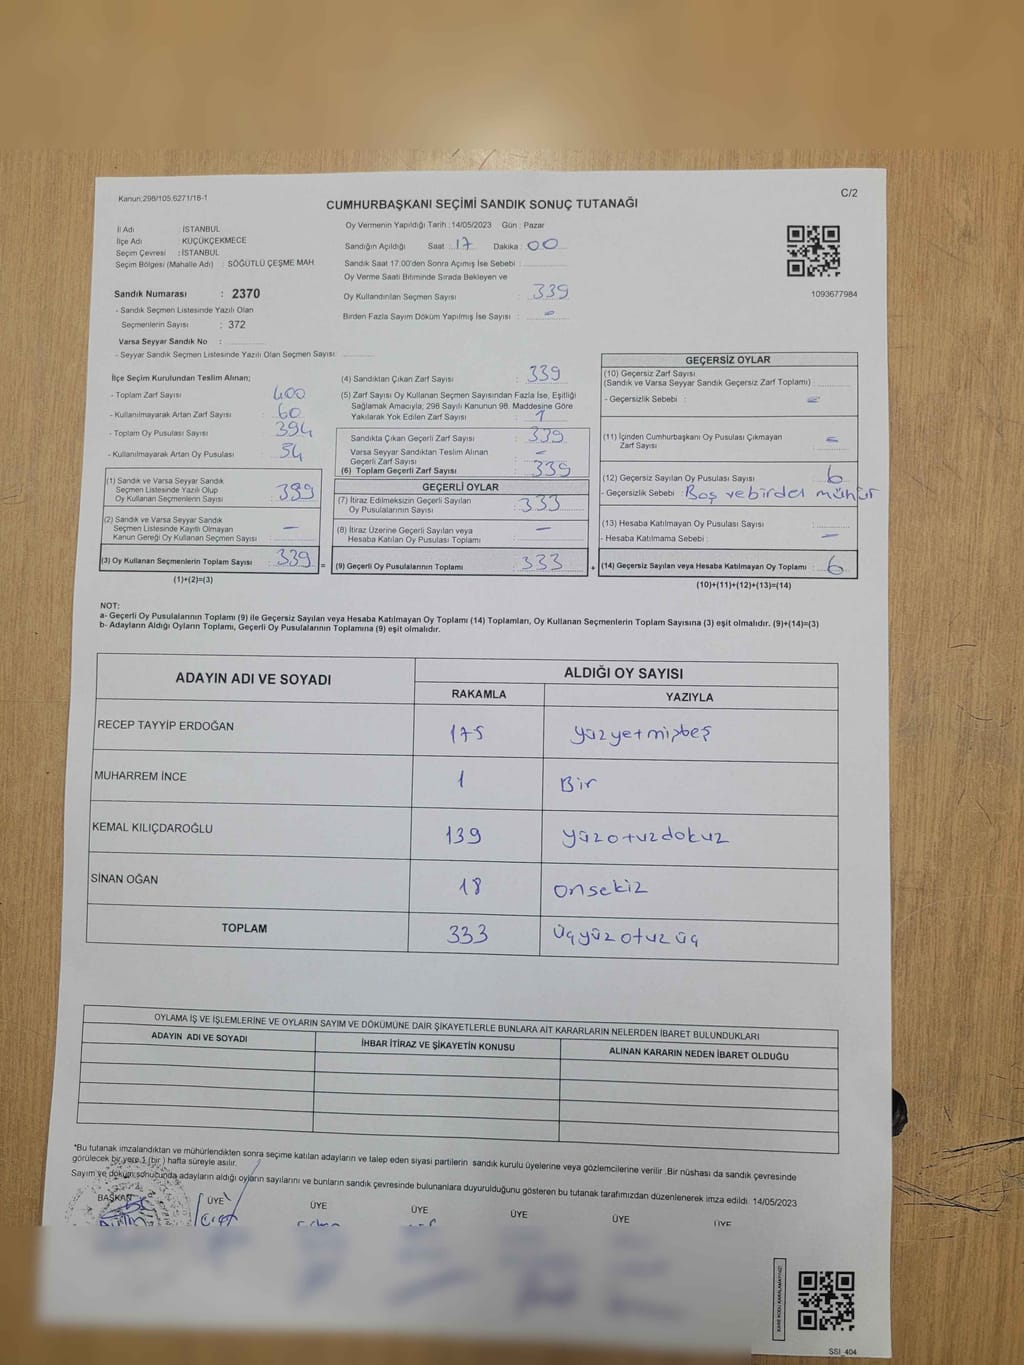 Kanun;298/105,6271/18-1
C/2
CUMHURBAŞKANI SEÇİMİ SANDIK SONUÇ TUTANAĞI
İl Adı : İSTANBUL
İlçe Adı : KÜÇÜKÇEKMECE
Seçim Çevresi : İSTANBUL
Seçim Bölgesi (Mahalle Adı) : SÖĞÜTLÜ ÇEŞME MAH.
Sandık Numarası : 2370
- Sandık Seçmen Listesinde Yazılı Olan
Seçmenlerin Sayısı : 372
Varsa Seyyar Sandık No :
- Seyyar Sandık Seçmen Listesinde Yazılı Olan Seçmen Sayısı:
Oy Vermenin Yapıldığı Tarih : 14/05/2023 Gün : Pazar
Sandığın Açıldığı Saat : 17 Dakika : 00
Sandık Saat 17:00'den Sonra Açımış İse Sebebi :
Oy Verme Saati Bitiminde Sırada Bekleyen ve
Oy Kullandırılan Seçmen Sayısı : 339
Birden Fazla Sayım Döküm Yapılmış İse Sayısı : -
1093677984
İlçe Seçim Kurulundan Teslim Alınan;
- Toplam Zarf Sayısı : 400
- Kullanılmayarak Artan Zarf Sayısı : 60
- Toplam Oy Pusulası Sayısı : 394
- Kullanılmayarak Artan Oy Pusulası : 54
(1) Sandık ve Varsa Seyyar Sandık
Seçmen Listesinde Yazılı Olup
Oy Kullanan Seçmenlerin Sayısı : 339
(2) Sandık ve Varsa Seyyar Sandık
Seçmen Listesinde Kayıtlı Olmayan
Kanun Gereği Oy Kullanan Seçmen Sayısı : -
(3) Oy Kullanan Seçmenlerin Toplam Sayısı : 339 =
(1)+(2)=(3)
(4) Sandıktan Çıkan Zarf Sayısı : 339
(5) Zarf Sayısı Oy Kullanan Seçmen Sayısından Fazla İse, Eşitliği
Sağlamak Amacıyla; 298 Sayılı Kanunun 98. Maddesine Göre
Yakılarak Yok Edilen Zarf Sayısı : 1
Sandıkta Çıkan Geçerli Zarf Sayısı : 339
Varsa Seyyar Sandıktan Teslim Alınan
Geçerli Zarf Sayısı : -
(6) Toplam Geçerli Zarf Sayısı : 339
GEÇERLİ OYLAR
(7) İtiraz Edilmeksizin Geçerli Sayılan
Oy Pusulalarının Sayısı : 333
(8) İtiraz Üzerine Geçerli Sayılan veya
Hesaba Katılan Oy Pusulası Toplamı : -
(9) Geçerli Oy Pusulalarının Toplamı : 333 +
GEÇERSİZ OYLAR
(10) Geçersiz Zarf Sayısı
(Sandık ve Varsa Seyyar Sandık Geçersiz Zarf Toplamı) :
- Geçersizlik Sebebi : -
(11) İçinden Cumhurbaşkanı Oy Pusulası Çıkmayan
Zarf Sayısı : -
(12) Geçersiz Sayılan Oy Pusulası Sayısı : 6
- Geçersizlik Sebebi : Boş ve birden mühür
(13) Hesaba Katılmayan Oy Pusulası Sayısı :
- Hesaba Katılmama Sebebi : -
(14) Geçersiz Sayılan veya Hesaba Katılmayan Oy Toplamı : 6
(10)+(11)+(12)+(13)=(14)
NOT:
a- Geçerli Oy Pusulalarının Toplamı (9) ile Geçersiz Sayılan veya Hesaba Katılmayan Oy Toplamı (14) Toplamları, Oy Kullanan Seçmenlerin Toplam Sayısına (3) eşit olmalıdır. (9)+(14)=(3)
b- Adayların Aldığı Oyların Toplamı, Geçerli Oy Pusulalarının Toplamına (9) eşit olmalıdır.
ADAYIN ADI VE SOYADI
ALDIĞI OY SAYISI
RAKAMLA YAZIYLA
RECEP TAYYİP ERDOĞAN 175 yüzyetmişbeş
MUHARREM İNCE 1 Bir
KEMAL KILIÇDAROĞLU 139 yüzotuzdokuz
SİNAN OĞAN 18 onsekiz
TOPLAM 333 üçyüzotuzüç
OYLAMA İŞ VE İŞLEMLERİNE VE OYLARIN SAYIM VE DÖKÜMÜNE DAİR ŞİKAYETLERLE BUNLARA AİT KARARLARIN NELERDEN İBARET BULUNDUKLARI
ADAYIN ADI VE SOYADI İHBAR İTİRAZ VE ŞİKAYETİN KONUSU ALINAN KARARIN NEDEN İBARET OLDUĞU
*Bu tutanak imzalandıktan ve mühürlendikten sonra seçime katılan adayların ve talep eden siyasi partilerin sandık kurulu üyelerine veya gözlemcilerine verilir .Bir nüshası da sandık çevresinde
görülecek bir yere 1 (bir ) hafta süreyle asılır.
Sayım ve döküm sonucunda adayların aldığı oyların sayılarını ve bunların sandık çevresinde bulunanlara duyurulduğunu gösteren bu tutanak tarafımızdan düzenlenerek imza edildi. 14/05/2023
BAŞKAN ÜYE ÜYE ÜYE ÜYE ÜYE ÜYE
SSI_404